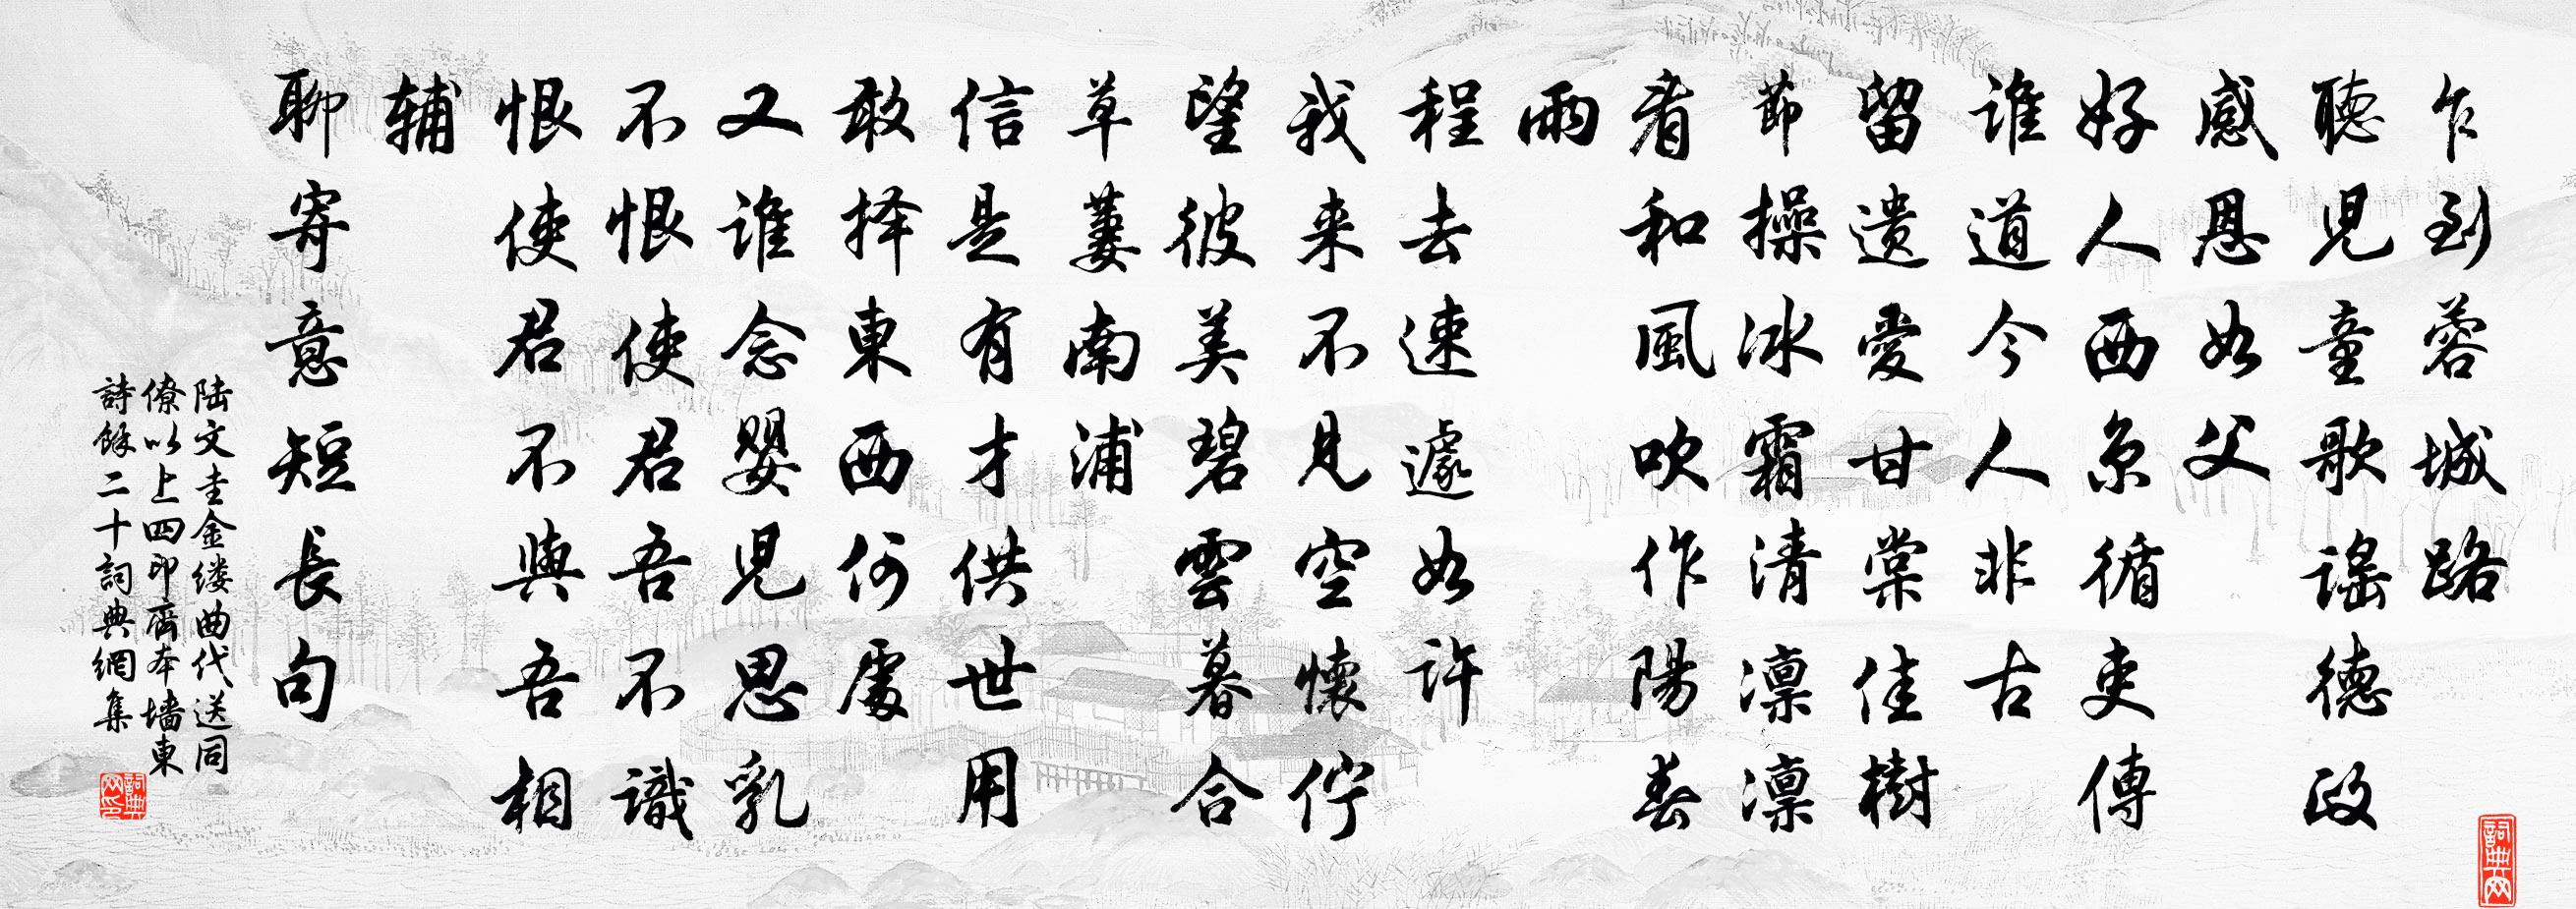 乍到蓉城路
聽児童歌謡德政
感恩如父
好人西京循吏傳
谁道今人非古
留遗愛甘棠佳樹
節操冰霜清凛凛
看和風吹作陽春
雨
程去速遽如许
我来不見空懷佇
望彼美碧雲暮合
草萋南浦
信是有才供世用
敢择東西何處
又谁念嬰児思乳
不恨使君吾不識
恨使君不與吾相
辅
聊寄意短長句
陆文圭金缕曲代送同
僚以上四印齋本墙東
詩餘二十詞典網集
詞典网
詞典网印